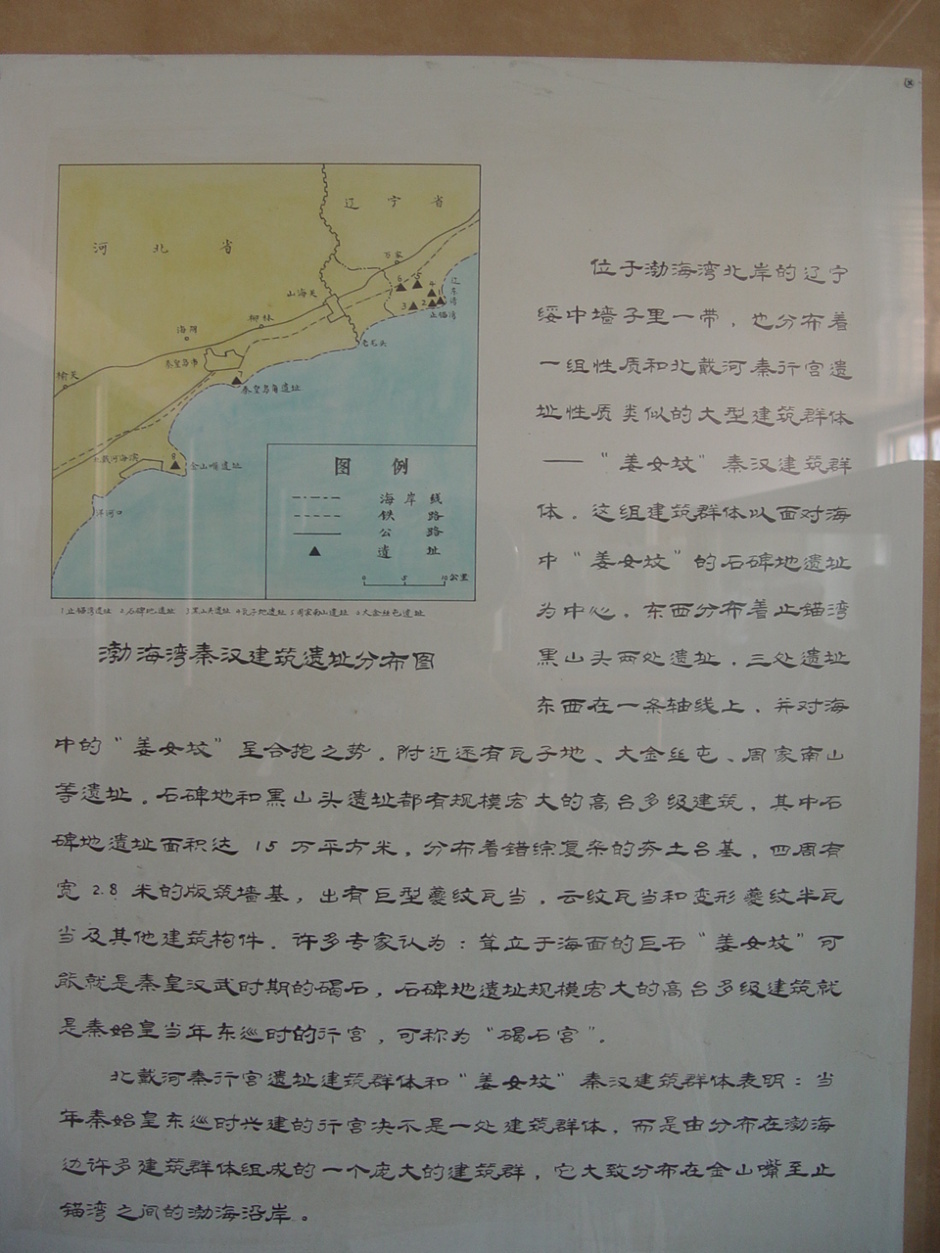 河北省
辽宁省
万家
山海关
柳林
海阳
秦皇岛市
榆关
老龙头
辽东湾
止锚湾
6
5
4
3
2
1
7
秦皇岛角遗址
戴河海滨
8
金山嘴遗址
洋河口
图例
海岸线
铁路
公路
遗址
0
10公里
1止锚湾遗址 2石碑地遗址 3黑山头遗址 4瓦子地遗址 5周家南山遗址 6大金丝屯遗址
渤海湾秦汉建筑遗址分布图
位于渤海湾北岸的辽宁
绥中墙子里一带，也分布着
一组性质和北戴河秦行宫遗
址性质类似的大型建筑群体
——“姜女坟”秦汉建筑群
体．这组建筑群体以面对海
中“姜女坟”的石碑地遗址
为中心．东西分布着止锚湾
黑山头两处遗址．三处遗址
东西在一条轴线上．并对海
中的“姜女坟”呈合抱之势．附近还有瓦子地、大金丝屯、周家南山
等遗址．石碑地和黑山头遗址都有规模宏大的高台多级建筑，其中石
碑地遗址面积达 15 万平方米，分布着错综复杂的夯土台基，四周有
宽 2.8 米的版筑墙基，出有巨型夔纹瓦当．云纹瓦当和变形夔纹半瓦
当及其他建筑构件．许多专家认为：耸立于海面的巨石“姜女坟”可
能就是秦皇汉武时期的碣石，石碑地遗址规模宏大的高台多级建筑就
是秦始皇当年东巡时的行宫，可称为“碣石宫”。
北戴河秦行宫遗址建筑群体和“姜女坟”秦汉建筑群体表明：当
年秦始皇东巡时兴建的行宫决不是一处建筑群体．而是由分布在渤海
边许多建筑群体组成的一个庞大的建筑群，它大致分布在金山嘴至止
锚湾之间的渤海沿岸。